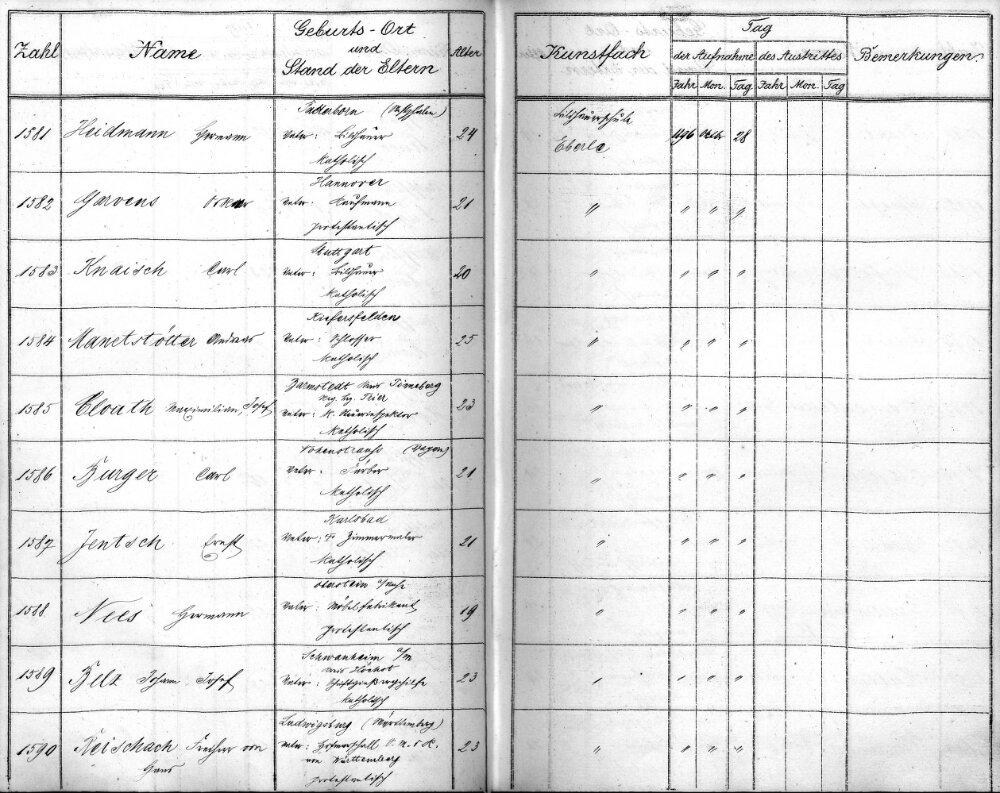 Zahl Name Geburts-Ort und Stand der Eltern Alter Kunstfach Tag der Aufnahme des Austrittes Bemerkungen
Jahr Mon. Tag Jahr Mon. Tag
Paderborn (Westphalen) Bildhauerschule
1581 Heidmann Hermann Vater: Bildhauer 24 Eberle 1896 Octb. 28
Katholisch
Hannover
1582 Garvens Oskar Vater: Kaufmann 21 " " " "
protestantisch
Stuttgart
1583 Knaisch Carl Vater: Bildhauer 20 " " " "
Katholisch
Kiefersfelden
1584 Manetstötter Andreas Vater: Schlosser 25 " " " "
Katholisch
Barmstedt Kreis Pinneberg
Reg. Bz.
1585 Clouth Maximilian Josef Vater: K. 23 " " " "
Katholisch
(Bayern)
1586 Burger Carl Vater: Färber 21 " " " "
Katholisch
Karlsbad
1587 Jentsch Ernst Vater: † Zimmermaler 21 " " " "
Katholisch
1588 Nees Hermann Vater: Möbelfabrikant 19 " " " "
protestantisch
Schwanheim a/M
1589 Belz Johann Josef Vater: 23 " " " "
Katholisch
Ludwigsburg (Württemberg)
1590 Reischach Freiherr von Vater: Hofmarschall 23 " " " "
Hans von Württemberg
protestantisch